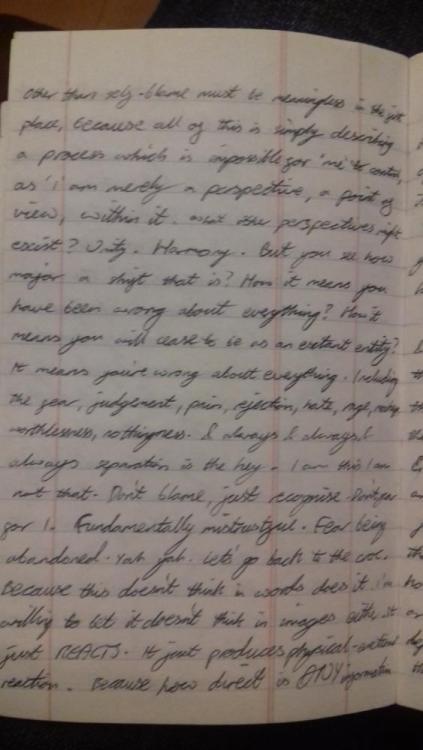 other than self-blame must be meaningless in the first
place, because all of this is simply describing
a process which is impossible for 'me' to control,
as 'i' am merely a perspective, a point of
view, within it. what other perspectives might
exist? Unity. Harmony. But you see how
major a shift that is? How it means you
have been wrong about everything? How it
means you will cease to be as an extant entity?
It means you're wrong about everything. Including
the fear, judgement, pain, rejection, hate, rage,
worthlessness, nothingness. I always I always I
always separation is the key. I am this I am
not that. Don't blame, just recognise. Don't
for 1. Fundamentally mistrustful. Fear being
abandoned. Yah yah. Let's go back to the
Because this doesn't think in words does it. I'm
willing to bet it doesn't think in images either. it
just REACTS. It just produces physical-
reaction. Because how direct is ANY information